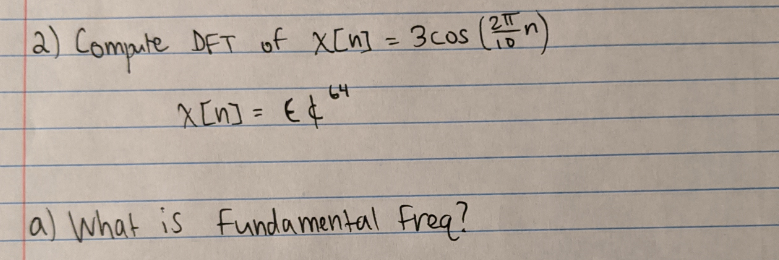 2) Compute DFT of X[n] = 3cos (2π/10 n)
X[n] = ϵ ¢^64
a) What is fundamental freq?